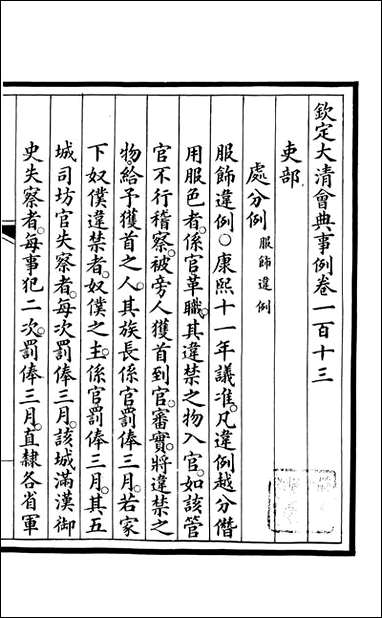 欽定大清會典事例卷一百十三
吏部
處分例 服飾違例
服飾違例〇康熙十一年議准。凡違例越分僭
用服色者。係官革職。其違禁之物入官。如該管
官不行稽察。被旁人獲首到官。審實。將違禁之
物。給予獲首之人。其族長係官罰俸三月。若家
下奴僕違禁者。奴僕之主。係官罰俸三月。其五
城司坊官失察者。每次罰俸三月。該城滿漢御
史失察者。每事犯二次。罰俸三月。直隸各省軍